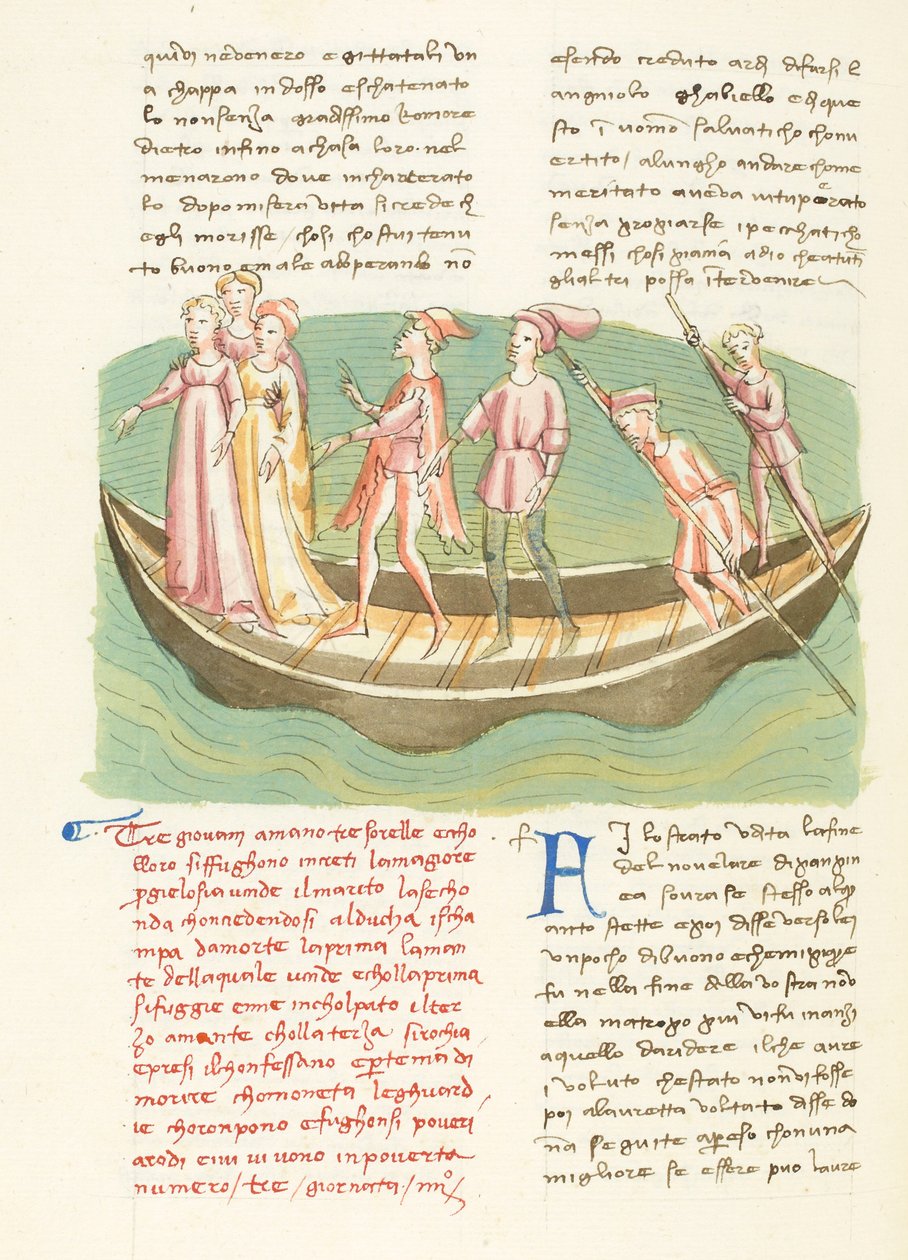 quivi ne venero e gittatali un
a chappa in dosso e schatenato
lo non senza gradissimo romore
dietro infino a chasa loro nel
menarono dove incharcerato
lo dopo misera vita si crede ch
egli morisse / chosi chostui tenu
to buono e male adoperando nō
esendo creduto ardi di farsi l
angniolo ghabiello e di que
sto ī uomo salvaticho chonv
ertito / a lungho andare chome
meritato aveva vituperato
senza pro piarse i pecchati cho
messi chosi piaccia a dio che a tuti
gli altri possa ītervenire
Tre giovani amano tre sorelle e cho
lloro siffughono in creti la magiore
p gielosia unde il marito la secho
nda choncedendosi al ducha ischa
mpa da morte la prima l aman
te della quale unde e cholla prima
si fuggie enne incholpato il ter
zo amante cholla terza sirochia
e presi il chonfessano e p tema di
morire chō moneta le ghuard
ie choronpono e fughonsi poveri
a rodi e ivi vivono in poverta
numero / tre / giornata / iiij°
Filostrato udita la fine
del novelare di panpin
ea sovra se stesso alq
anto stette e poi disse verso lei
un pocho di buono e che mi piaq
fu nella fine della vostra nov
ella ma tropo piu vi fu inanzi
a quello da ridere il che avre
i voluto che stato non vi fosse
poi a lauretta voltato disse do
na seguite apreso chon una
migliore se essere puo laure